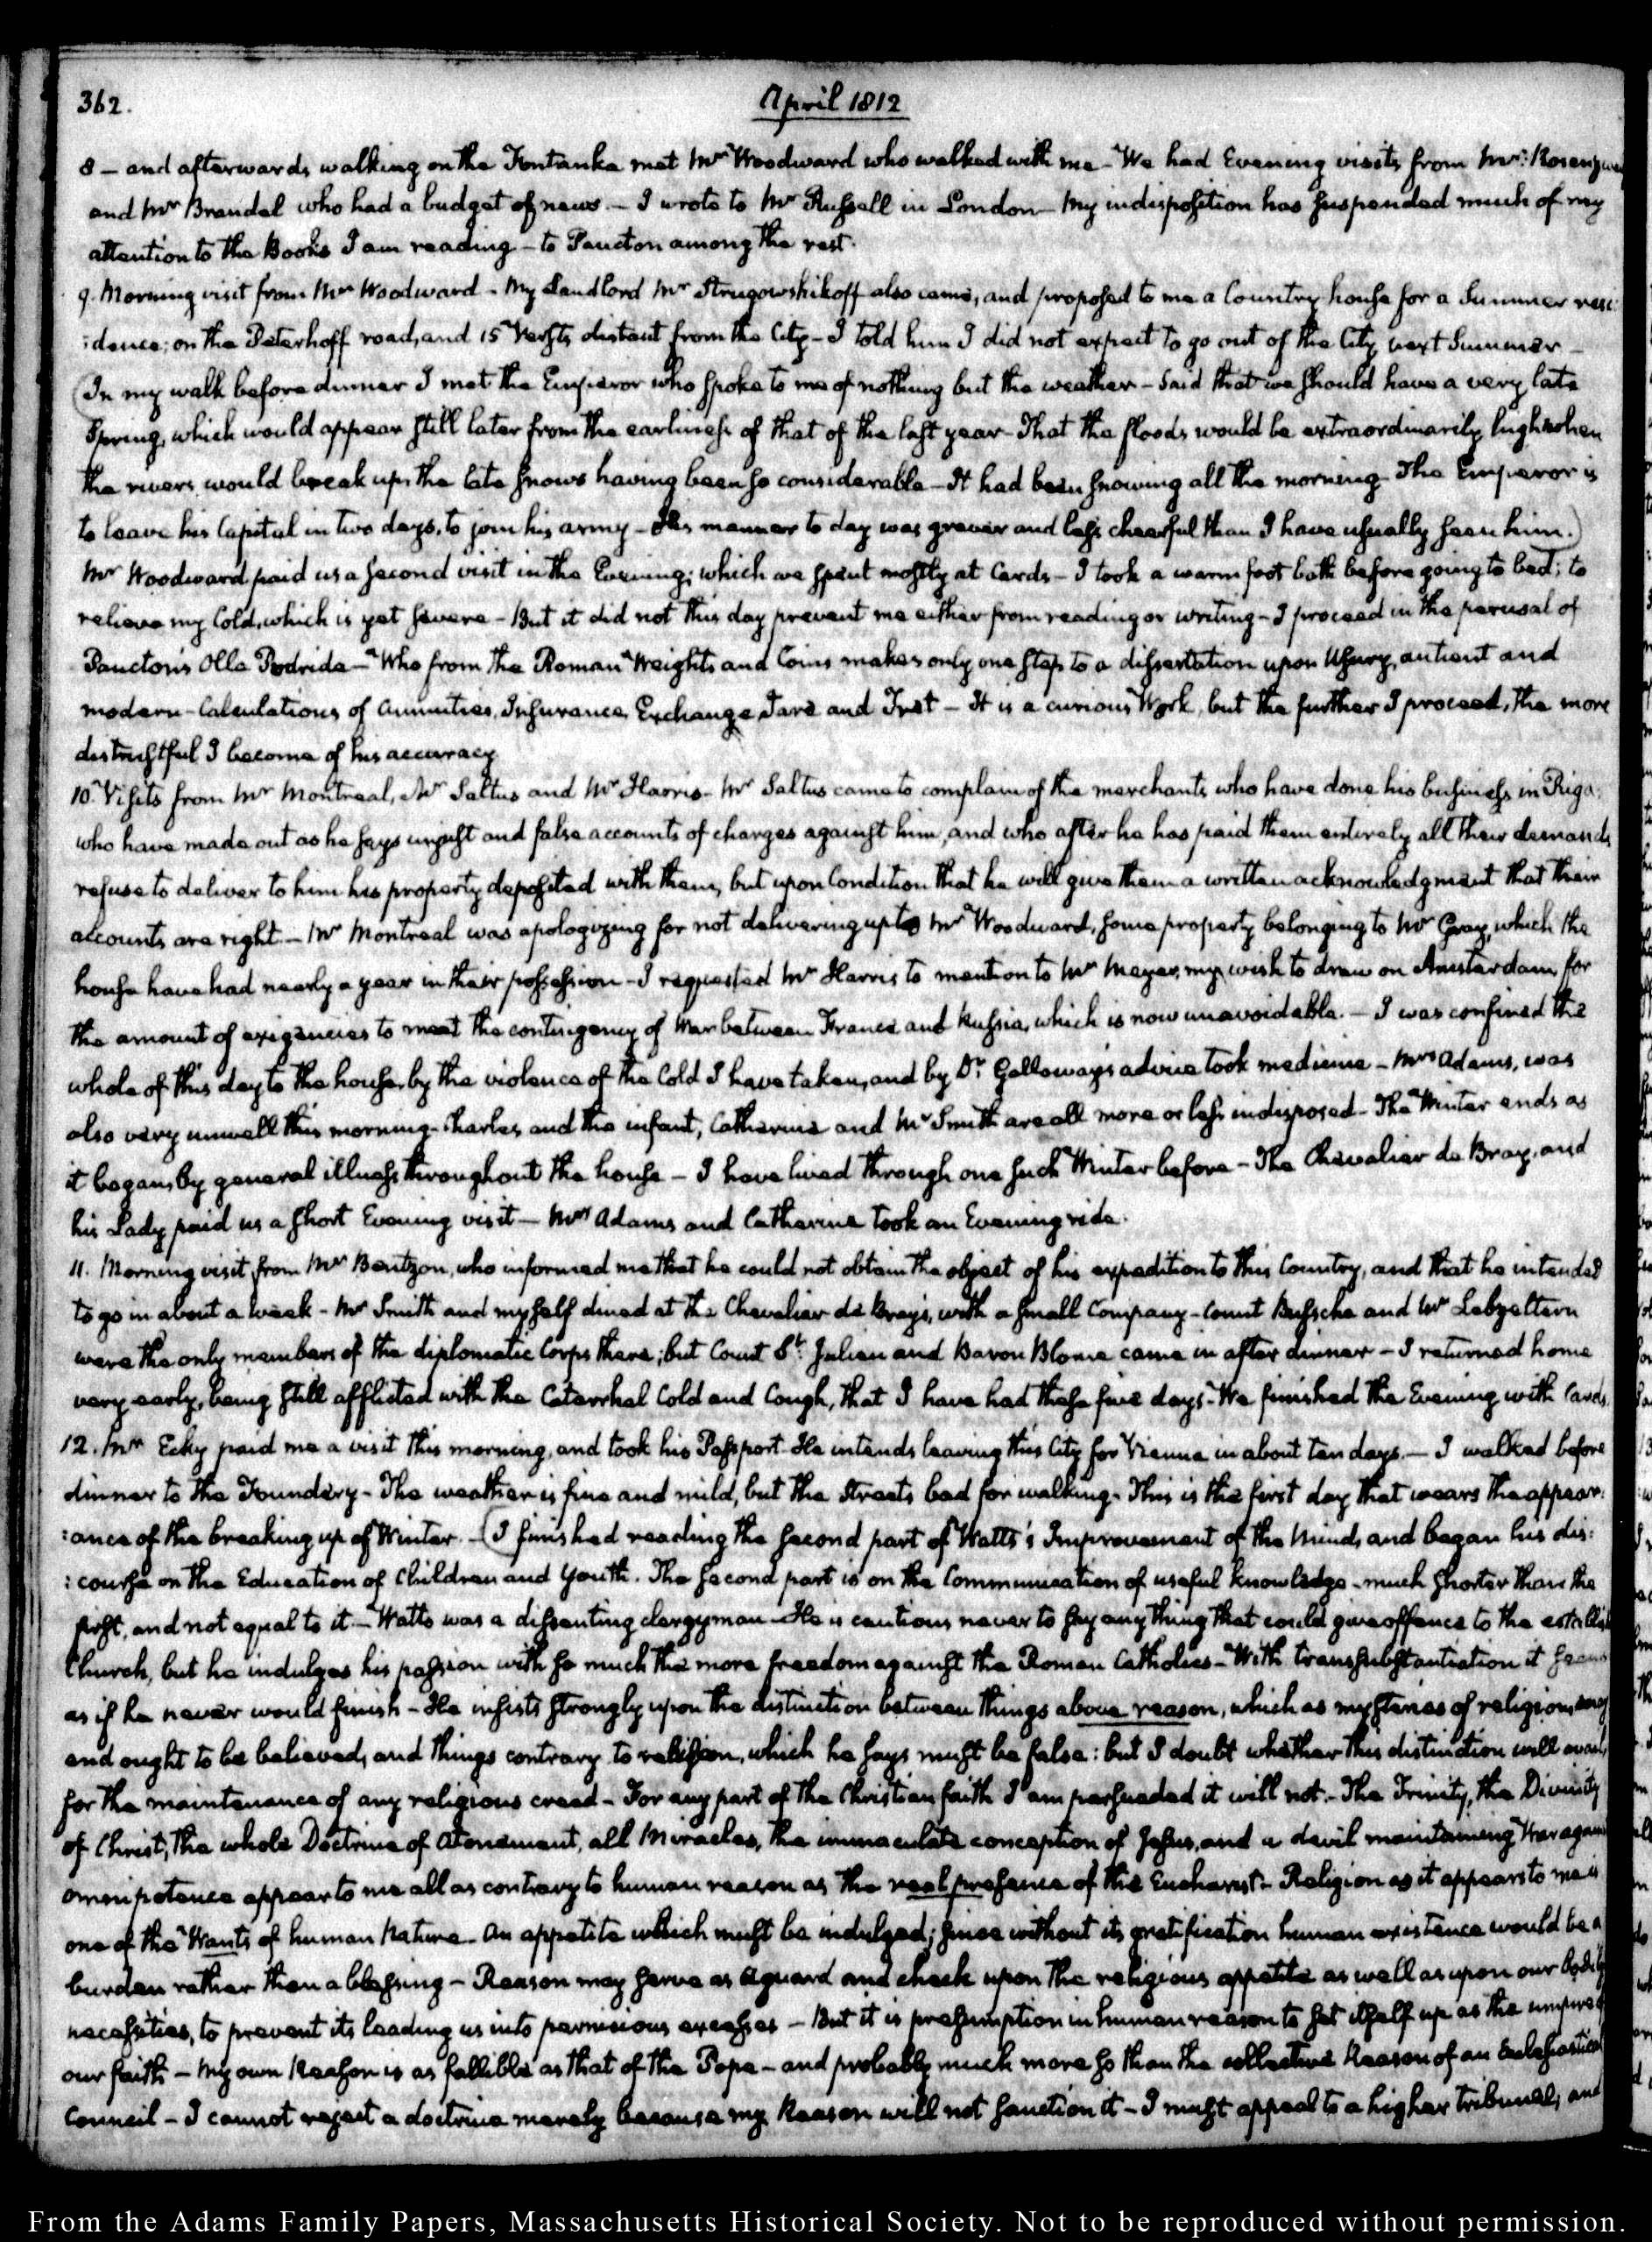 362.
April 1812
8 — and afterwards walking on the Fontanka met Mr Woodward who walked with me — We had Evening visits from Mr:
and Mr Brandel who had a budget of news. — I wrote to Mr Russell in London — My indisposition has suspended much of my
attention to the Books I am reading — to Paucton among the rest.
9. Morning visit from Mr Woodward — My Landlord Mr Strugowshikoff also came, and proposed to me a Country house for a Summer resi
:dence; on the Peterhoff road, and 15 Versts distant from the City — I told him I did not expect to go out of the City next Summer —
(In my walk before dinner I met the Emperor who spoke to me of nothing but the weather — Said that we should have a very late
Spring, which would appear still later from the earliness of that of the last year — That the floods would be extraordinarily high when
the rivers would break up, the late snows having been so considerable — It had been snowing all the morning — The Emperor is
to leave his Capital in two days, to join his army — His manner to day was graver and less cheerful than I have usually seen him.)
Mr Woodward paid us a second visit in the Evening; which we spent mostly at Cards — I took a warm foot bath before going to bed; to
relieve my Cold, which is yet severe — But it did not this day prevent me either from reading or writing — I proceed in the perusal of
Paucton's Olla Podrida — Who from the Roman Weights and Coins makes only one step to a dissertation upon Usury, antient and
modern — Calculations of Annuities, Insurance, Exchange Tare and Tret — It is a curious Work, but the further I proceed, the more
distrustful I become of his accuracy
10. Visits from Mr Montreal, Mr Saltus and Mr Harris — Mr Saltus came to complain of the merchants who have done his business in Riga;
who have made out as he says unjust and false accounts of charges against him, and who after he has paid them entirely all their demands
refuse to deliver to him his property deposited with them, but upon Condition that he will give them a written acknowledgment that their
accounts are right. — Mr Montreal was apologizing for not delivering up to Mr Woodward, some property belonging to Mr Gray, which the
house have had nearly a year in their possession — I requested Mr Harris to mention to Mr Meyer, my wish to draw on Amsterdam, for
the amount of exigencies to meet the contingency of War between France and Russia, which is now unavoidable. — I was confined the
whole of this day to the house, by the violence of the Cold I have taken, and by Dr. Galloway's advice took medicine — Mrs Adams, was
also very unwell this morning — Charles, and the infant, Catherine and Mr Smith are all more or less indisposed — The Winter ends as
it began, by general illness throughout the house — I have lived through one such Winter before — The Chevalier de Bray, and
his Lady paid us a short Evening visit — Mrs Adams and Catherine took an Evening ride.
11. Morning visit from Mr Bentzon, who informed me that he could not obtain the object of his expedition to this Country, and that he intended
to go in about a week — Mr Smith and myself dined at the Chevalier de Bray's, with a small Company — Count Bussche and Mr Lebzeltern
were the only members of the diplomatic Corps there; but Count St. Julien and Baron Blome came in after dinner — I returned home
very early, being still afflicted with the Catarrhal Cold and Cough, that I have had these five days — We finished the Evening with Cards.
12. Mr Ecky paid me a visit this morning, and took his Passport — He intends leaving this City for Vienna in about ten days. — I walked before
dinner to the Foundery — The weather is fine and mild, but the Streets bad for walking — This is the first day that wears the appear:
:ance of the breaking up of Winter. — (I finished reading the second part of Watts's Improvement of the Mind, and began his dis:
:course on the Education of Children and Youth. The second part is on the Communication of useful knowledge — much shorter than the
first, and not equal to it — Watts was a dissenting clergyman — He is cautious never to say any thing that could give offence to the
Church, but he indulges his passion with so much the more freedom against the Roman Catholics — With transubstantiation it seems
as if he never would finish — He insists strongly upon the distinction between things above reason, which as mysteries of religion, may
and ought to be believed, and things contrary to religion, which he says must be false: but I doubt whether this distinction will avail
for the maintenance of any religious creed — For any part of the Christian faith I am persuaded it will not. — The Trinity, the Divinity
of Christ, the whole Doctrine of Atonement, all Miracles, the immaculate conception of Jesus, and a devil maintaining War against
omnipotence appear to me all as contrary to human reason as the real presence of the Eucharist — Religion as it appears to me is
one of the Wants of human Nature — An appetite which must be indulged; since without its gratification human existence would be a
burden rather than a blessing — Reason may serve as a guard and check upon the religious appetite as well as upon our bodily
necessities, to prevent its leading us into pernicious excesses — But it is presumption in human reason to set itself up as the umpire of
our faith — My own Reason is as fallible as that of the Pope — and probably much more so than the collective Reason of an Ecclesiastical
Council — I cannot reject a doctrine merely because my Reason will not sanction it — I must appeal to a higher tribunal, and
From the Adams Family Papers, Massachusetts Historical Society. Not to be reproduced without permission.